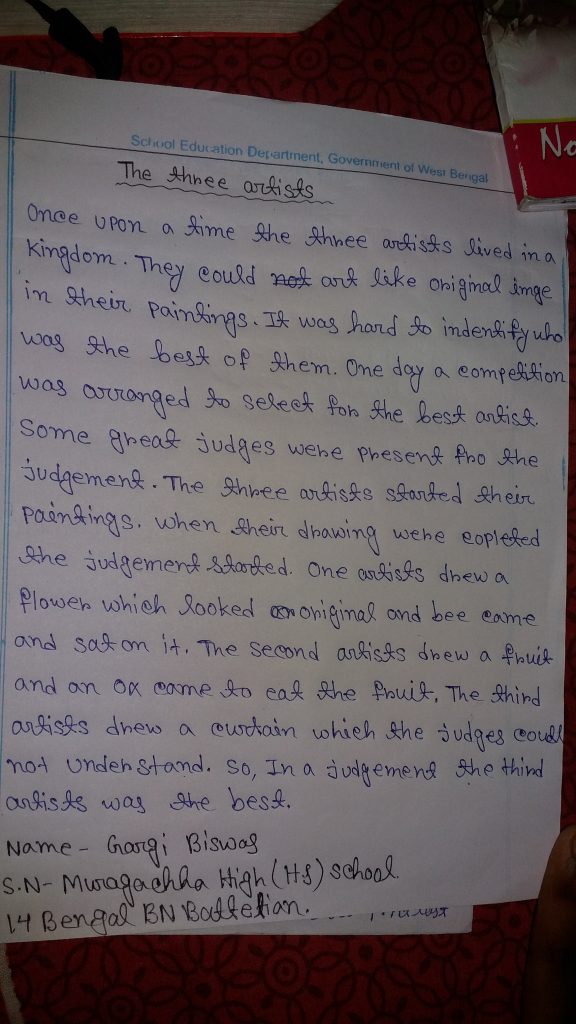 School Education Department, Government of West Bengal
No
The three artists
Once upon a time the three artists lived in a
Kingdom. They could not art like original imge
in their paintings. It was hard to indentify who
was the best of them. One day a competition
was arranged to select for the best artist.
Some great judges were present fro the
judgement. The three artists started their
paintings. When their drawing were copleted
the judgement started. One artists drew a
flower which looked original and bee came
and sat on it. The second artists drew a fruit
and an ox came to eat the fruit. The third
artists drew a curtain which the judges could
not understand. So, In a judgement the third
artists was the best.
Name - Gargi Biswas
S.N- Muragachha High (HS) School.
14 Bengal BN Battelian.